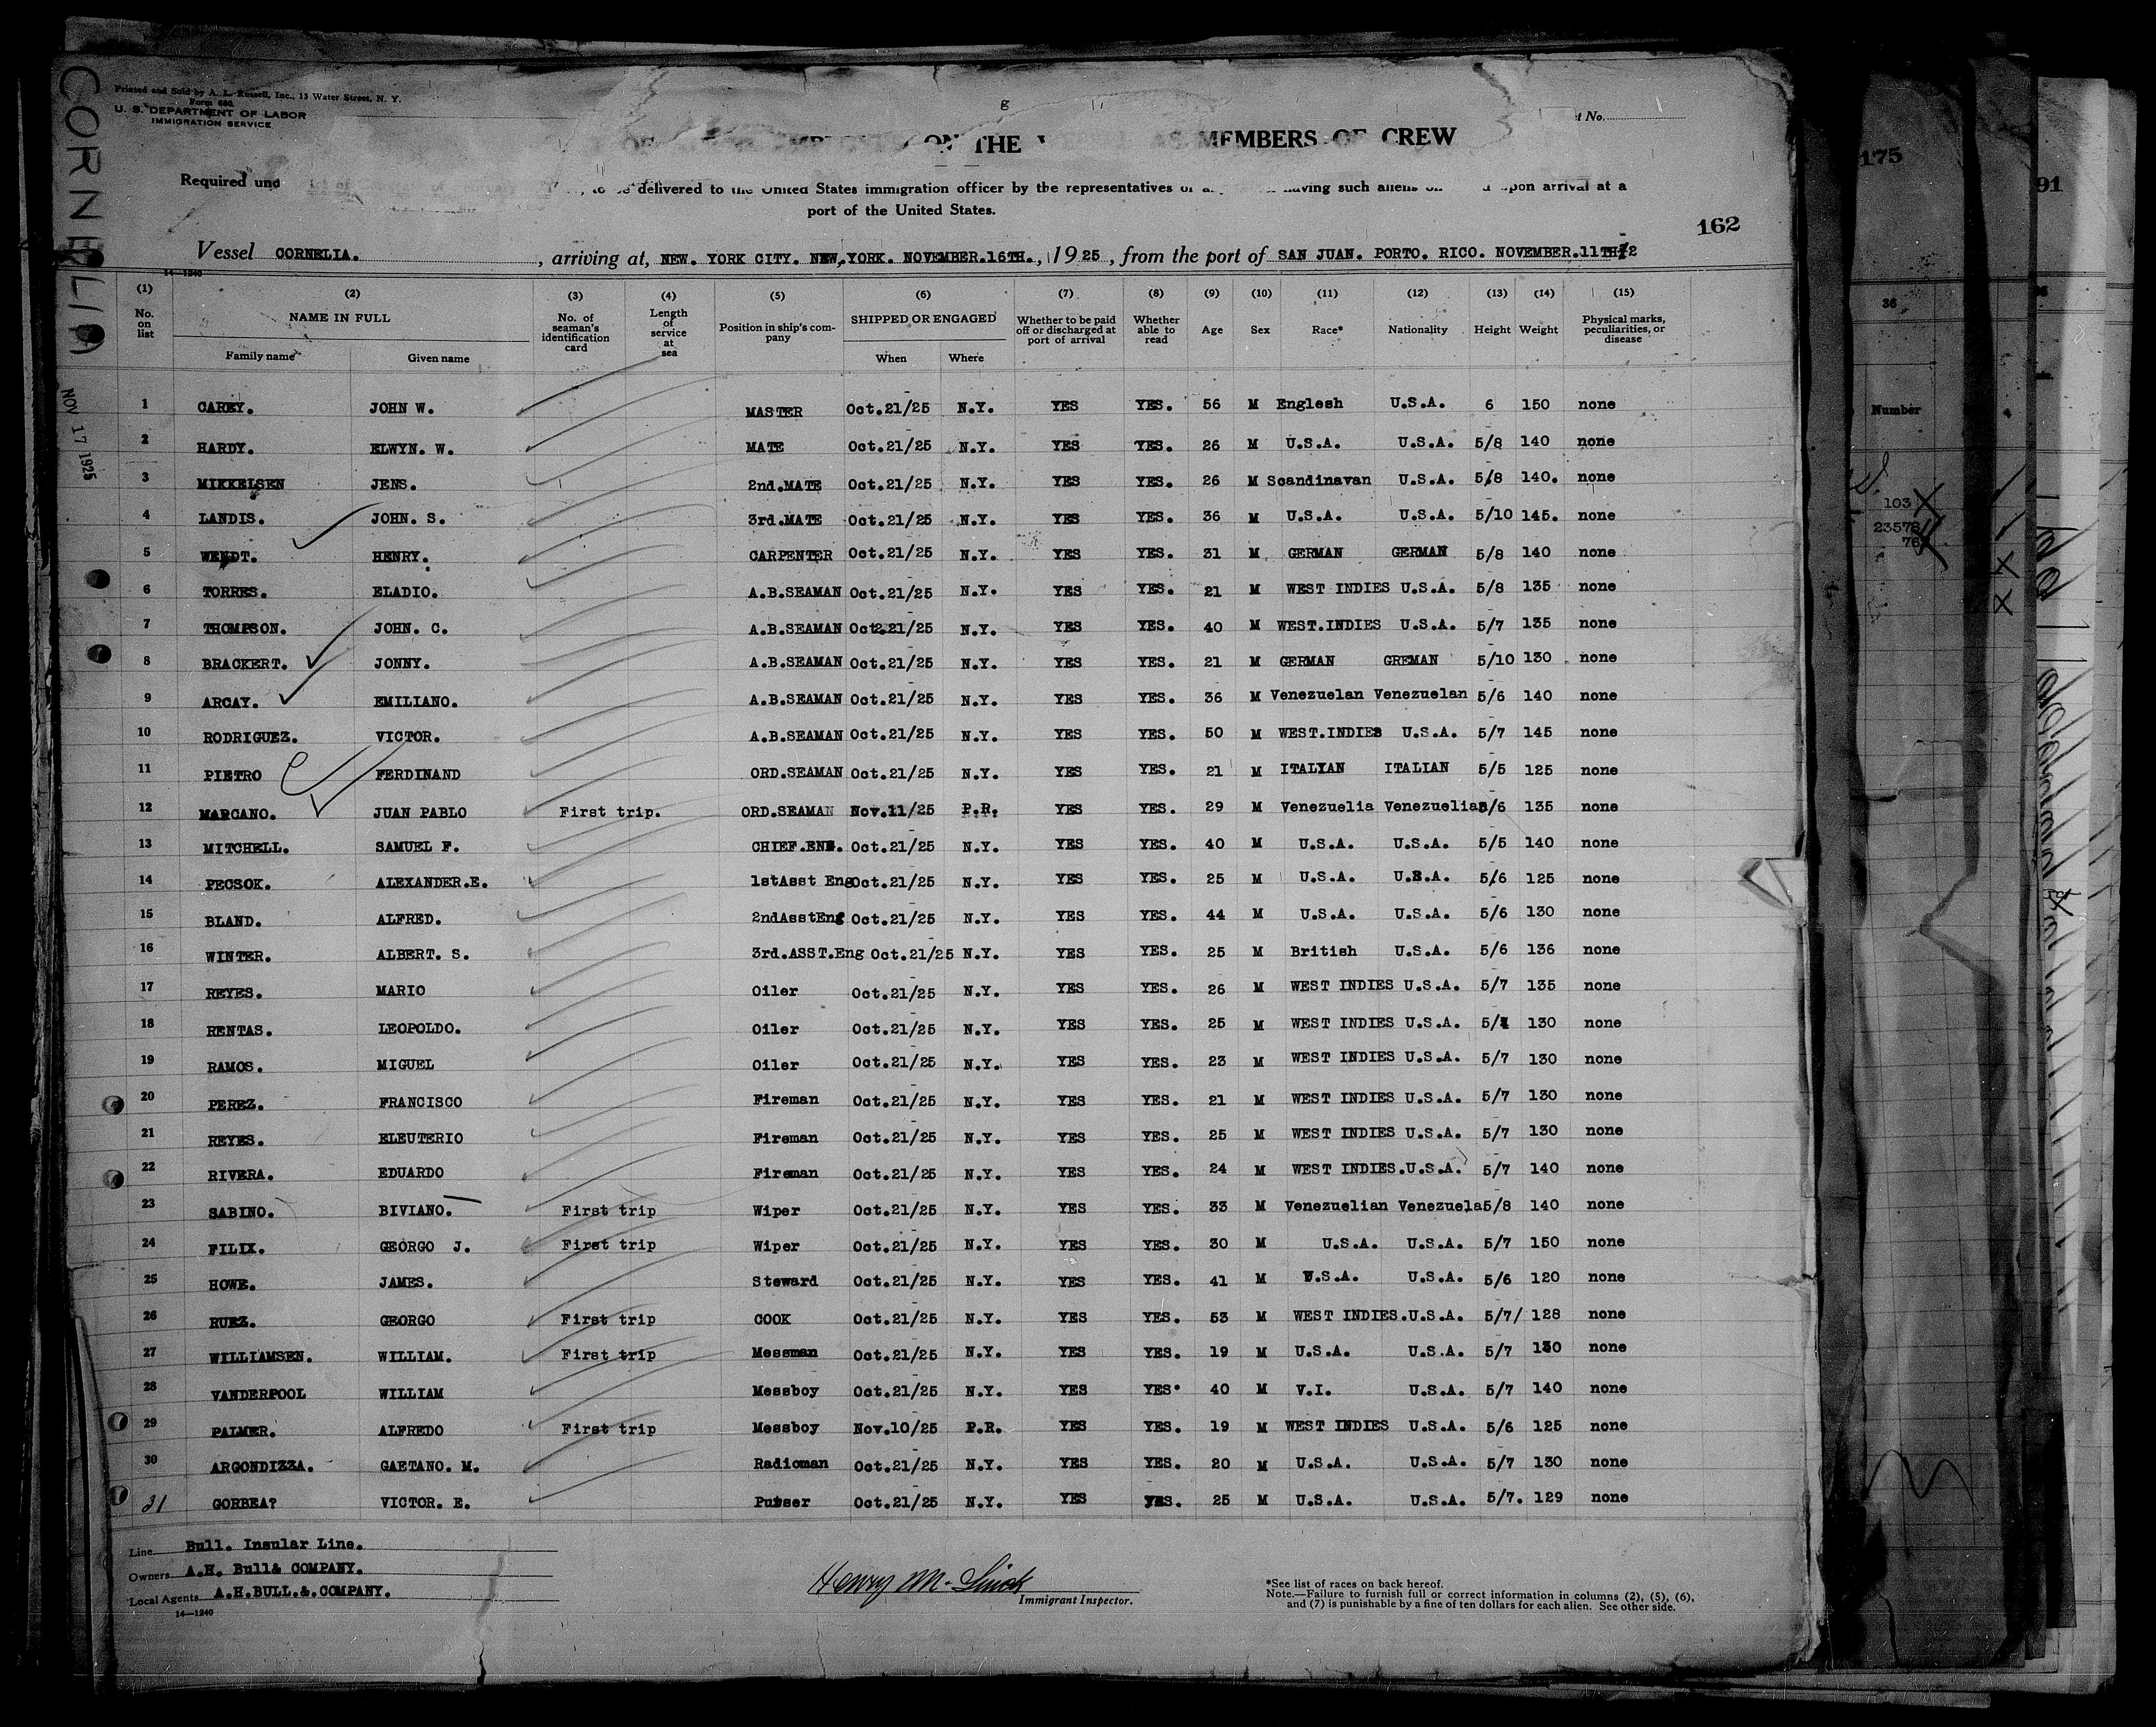 CORNELIA
Printed and Sold by A. L. Russell, Inc., 13 Water Street, N. Y.
Form 680
U. S. DEPARTMENT OF LABOR
IMMIGRATION SERVICE
t No.
ON THE MEMBERS OF CREW
Required und , to be delivered to the United States immigration officer by the representatives of having such aliens upon arrival at a
port of the United States.
162
Vessel CORNELIA. , arriving at, NEW. YORK CITY. NEW, YORK. NOVEMBER.16TH. , 1925 , from the port of SAN JUAN. PORTO. RICO. NOVEMBER.11TH
14—1240
(1) (2) (3) (4) (5) (6) (7) (8) (9) (10) (11) (12) (13) (14) (15)
No. on list NAME IN FULL Family name Given name No. of seaman's identification card Length of service at sea Position in ship's company SHIPPED OR ENGAGED When Where Whether to be paid off or discharged at port of arrival Whether able to read Age Sex Race* Nationality Height Weight Physical marks, peculiarities, or disease
NOV 17 1925
1 CAREY. JOHN W. MASTER Oct.21/25 N.Y. YES YES. 56 M Englesh U.S.A. 6 150 none
2 HARDY. ELWYN. W. MATE Oct.21/25 N.Y. YES YES. 26 M U.S.A. U.S.A. 5/8 140 none
3 MIKKELSEN JENS. 2nd.MATE Oct.21/25 N.Y. YES YES. 26 M Scandinavan U.S.A. 5/8 140. none
4 LANDIS. JOHN. S. 3rd.MATE Oct.21/25 N.Y. YES YES. 36 M U.S.A. U.S.A. 5/10 145. none
5 WENDT. HENRY. CARPENTER Oct.21/25 N.Y. YES YES. 31 M GERMAN GERMAN 5/8 140 none
6 TORRES. ELADIO. A.B.SEAMAN Oct.21/25 N.Y. YES YES. 21 M WEST INDIES U.S.A. 5/8 135 none
7 THOMPSON. JOHN. C. A.B.SEAMAN Oct.21/25 N.Y. YES YES. 40 M WEST.INDIES U.S.A. 5/7 135 none
8 BRACKERT. JONNY. A.B.SEAMAN Oct.21/25 N.Y. YES YES. 21 M GERMAN GREMAN 5/10 130 none
9 ARCAY. EMILIANO. A.B.SEAMAN Oct.21/25 N.Y. YES YES. 36 M Venezuelan Venezuelan 5/6 140 none
10 RODRIGUEZ. VICTOR. A.B.SEAMAN Oct.21/25 N.Y. YES YES. 50 M WEST.INDIES U.S.A. 5/7 145 none
11 PIETRO FERDINAND ORD.SEAMAN Oct.21/25 N.Y. YES YES. 21 M ITALIAN ITALIAN 5/5 125 none
12 MARCANO. JUAN PABLO First trip. ORD.SEAMAN Nov.11/25 P.R. YES YES. 29 M Venezuelia Venezuelian 5/6 135 none
13 MITCHELL. SAMUEL F. CHIEF.ENG. Oct.21/25 N.Y. YES YES. 40 M U.S.A. U.S.A. 5/5 140 none
14 PECSOK. ALEXANDER.E. 1stAsst Eng Oct.21/25 N.Y. YES YES. 25 M U.S.A. U.S.A. 5/6 125 none
15 BLAND. ALFRED. 2ndAsstEng Oct.21/25 N.Y. YES YES. 44 M U.S.A. U.S.A. 5/6 130 none
16 WINTER. ALBERT. S. 3rd.ASST.Eng Oct.21/25 N.Y. YES YES. 25 M British U.S.A. 5/6 136 none
17 REYES. MARIO Oiler Oct.21/25 N.Y. YES YES. 26 M WEST INDIES U.S.A. 5/7 135 none
18 RENTAS. LEOPOLDO. Oiler Oct.21/25 N.Y. YES YES. 25 M WEST INDIES U.S.A. 5/4 130 none
19 RAMOS. MIGUEL Oiler Oct.21/25 N.Y. YES YES. 23 M WEST INDIES U.S.A. 5/7 130 none
20 PEREZ. FRANCISCO Fireman Oct.21/25 N.Y. YES YES. 21 M WEST INDIES U.S.A. 5/7 130 none
21 REYES. ELEUTERIO Fireman Oct.21/25 N.Y. YES YES. 25 M WEST INDIES U.S.A. 5/7 130 none
22 RIVERA. EDUARDO Fireman Oct.21/25 N.Y. YES YES. 24 M WEST INDIES.U.S.A. 5/7 140 none
23 SABINO. BIVIANO. First trip Wiper Oct.21/25 N.Y. YES YES. 33 M Venezuelian Venezuela 5/8 140 none
24 FILIX. GEORGO J. First trip Wiper Oct.21/25 N.Y. YES YES. 30 M U.S.A. U.S.A. 5/7 150 none
25 HOWE. JAMES. Steward Oct.21/25 N.Y. YES YES. 41 M U.S.A. U.S.A. 5/6 120 none
26 RUEZ. GEORGO First trip COOK Oct.21/25 N.Y. YES YES. 53 M WEST INDIES.U.S.A. 5/7/ 128 none
27 WILLIAMSEN. WILLIAM. First trip Messman Oct.21/25 N.Y. YES YES. 19 M U.S.A. U.S.A. 5/7 130 none
28 VANDERPOOL WILLIAM Messboy Oct.21/25 N.Y. YES YES. 40 M V.I. U.S.A. 5/7 140 none
29 PALMER. ALFREDO First trip Messboy Nov.10/25 P.R. YES YES. 19 M WEST INDIES U.S.A. 5/6 125 none
30 ARGONDIZZA. GAETANO. M. Radioman Oct.21/25 N.Y. YES YES. 20 M U.S.A. U.S.A. 5/7 130 none
31 GORBEA? VICTOR. E. Purser Oct.21/25 N.Y. YES YES. 25 M U.S.A. U.S.A. 5/7. 129 none
Line Bull. Insular Line.
Owners A.H. Bull& COMPANY.
Local Agents A.H.BULL.&.COMPANY.
14—1240
Henry M.
Immigrant Inspector.
*See list of races on back hereof.
Note.—Failure to furnish full or correct information in columns (2), (5), (6),
and (7) is punishable by a fine of ten dollars for each alien. See other side.
175
91
36
Number
103
23578
76